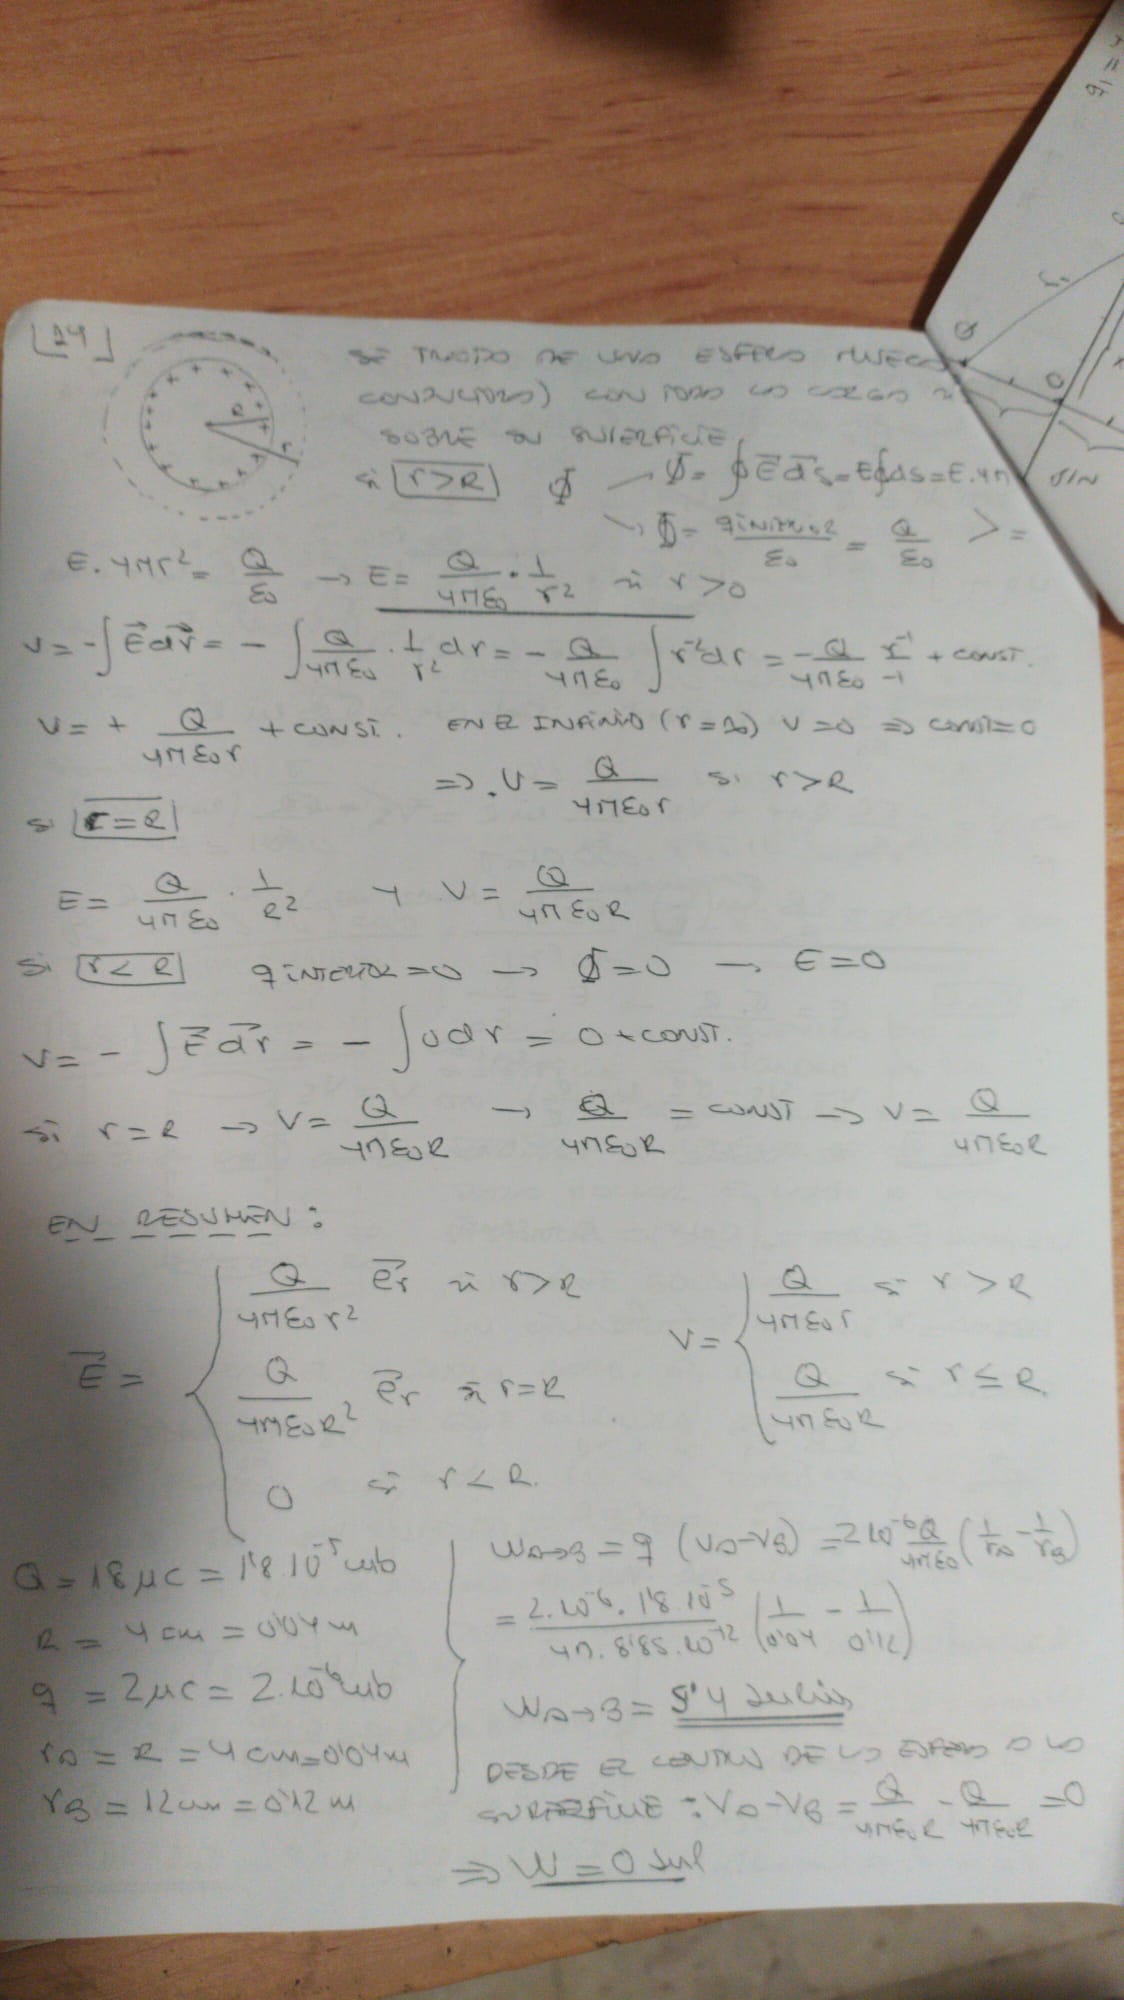 14
SE TRATA DE UNA ESFERA HUECA
CONDUCTORA) CON TODA LA CARGA
SOBRE SU SUPERFICIE
si r>R Φ → Φ = ∮ E⃗ dS⃗ = E∮ds = E.4π
→ Φ = q interior / ε₀ = Q/ε₀ > =
E.4πr² = Q/ε₀ → E = Q/4πε₀ · 1/r² si r>0
V = -∫E⃗dr⃗ = -∫ Q/4πε₀ · 1/r² dr = - Q/4πε₀ ∫r⁻²dr = -Q/4πε₀ r⁻¹/-1 + CONST.
V = + Q/4πε₀r + CONST. EN EL INFINITO (r=∞) V=0 ⇒ CONST=0
⇒ V = Q/4πε₀r si r>R
si r=R
E = Q/4πε₀ · 1/R² y V = Q/4πε₀R
si r<R q INTERIOR=0 → Φ=0 → E=0
V = -∫E⃗dr⃗ = -∫0dr = 0+CONST.
si r=R → V = Q/4πε₀R → Q/4πε₀R = CONST → V = Q/4πε₀R
EN RESUMEN:
E⃗ = { Q/4πε₀r² e⃗r si r>R
Q/4πε₀R² e⃗r si r=R
0 si r<R.
V = { Q/4πε₀r si r>R
Q/4πε₀R si r≤R.
Q = 18μC = 1'8.10⁻⁵ culb
R = 4cm = 0'04m
q = 2μC = 2.10⁻⁶ culb
rA = R = 4cm = 0'04m
rB = 12cm = 0'12m
WA→B = q (VA-VB) = 2 10⁻⁶ Q/4πε₀ (1/rA - 1/rB)
= 2.10⁻⁶. 1'8.10⁻⁵ / 4π. 8'85.10⁻¹² (1/0'04 - 1/0'12)
WA→B = 5'4 Julios
DESDE EL CENTRO DE LA ESFERA A LA
SUPERFICIE : VA-VB = Q/4πε₀R - Q/4πε₀R = 0
⇒ W = 0 Jul